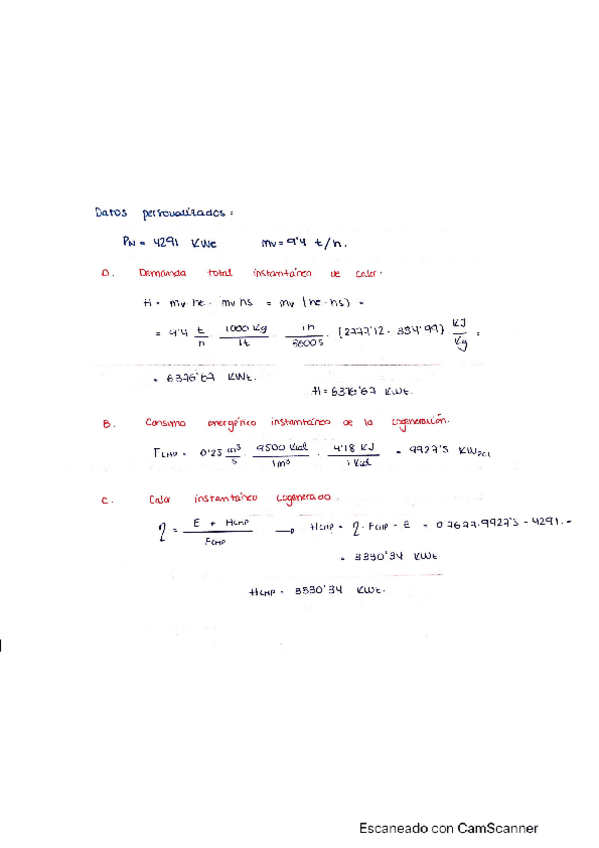 Datos personalizados:
PN = 4291 KWe mv = 9'4 t/h.
A. Demanda total instantánea de calor.
H = mv he - mv hs = mv (he - hs) =
= 9'4 t/h · 1000 Kg/1t · 1h/3600s · (2777'12 - 334'99) KJ/Kg =
= 6376'67 KWt.
H = 6376'67 KWt.
B. Consumo energético instantáneo de la cogeneración.
FCHP = 0'25 m³/s · 9500 Kcal/1m³ · 4'18 KJ/1 Kcal = 9927'5 KWPCI
C. Calor instantáneo cogenerado.
η = E + HCHP/FCHP → HCHP = η · FCHP - E = 0'7677·9927'5 - 4291. =
= 3330'34 KWt
HCHP = 3330'34 KWt.
Escaneado con CamScanner